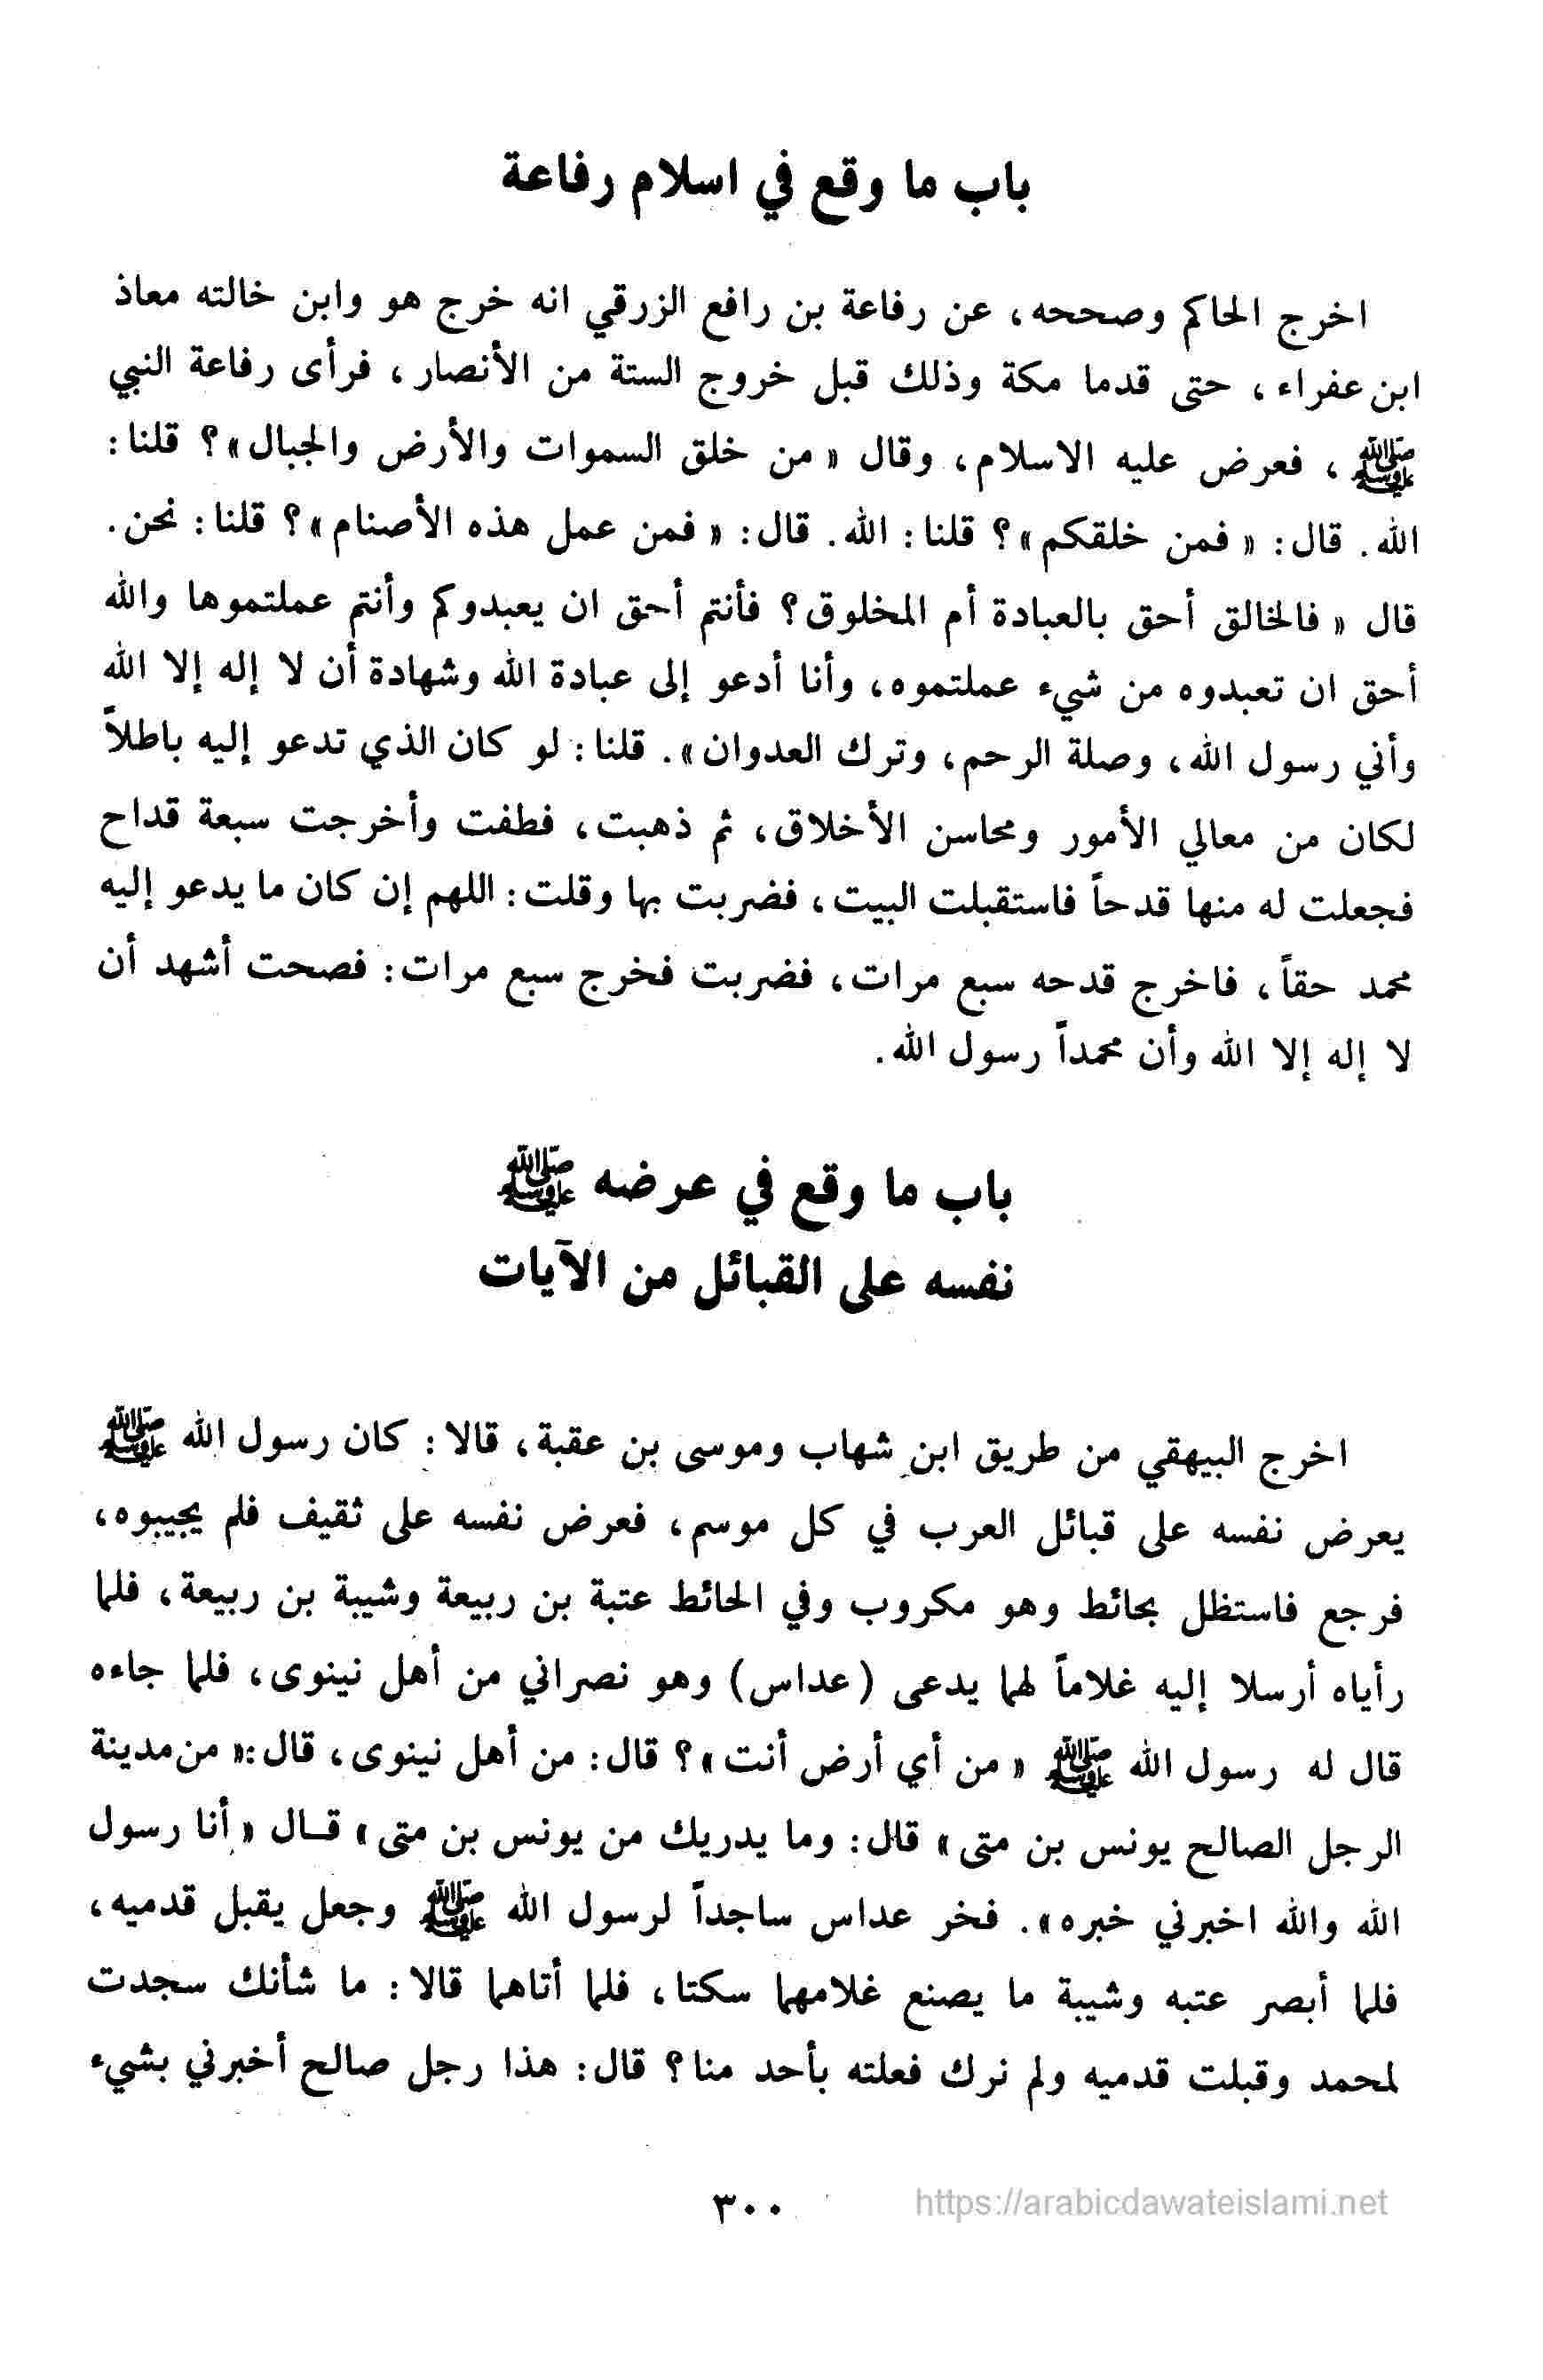 باب ما وقع في اسلام رفاعة
اخرج الحاكم وصححه، عن رفاعة بن رافع الزرقي انه خرج هو وابن خالته معاذ
ابن عفراء، حتى قدما مكة وذلك قبل خروج الستة من الأنصار، فرأى رفاعة النبي
ﷺ، فعرض عليه الاسلام، وقال « من خلق السموات والأرض والجبال»؟ قلنا:
الله. قال: « فمن خلقكم»؟ قلنا: الله. قال: « فمن عمل هذه الأصنام»؟ قلنا: نحن.
قال « فالخالق أحق بالعبادة أم المخلوق؟ فأنتم أحق ان يعبدوكم وأنتم عملتموها والله
أحق ان تعبدوه من شيء عملتموه، وأنا أدعو إلى عبادة الله وشهادة أن لا إله إلا الله
وأني رسول الله، وصلة الرحم، وترك العدوان». قلنا: لو كان الذي تدعو إليه باطلاً
لكان من معالي الأمور ومحاسن الأخلاق، ثم ذهبت، فطفت وأخرجت سبعة قداح
فجعلت له منها قدحاً فاستقبلت البيت، فضربت بها وقلت: اللهم إن كان ما يدعو إليه
محمد حقاً، فاخرج قدحه سبع مرات، فضربت فخرج سبع مرات: فصحت أشهد أن
لا إله إلا الله وأن محمداً رسول الله.
باب ما وقع في عرضه ﷺ
نفسه على القبائل من الآيات
اخرج البيهقي من طريق ابن شهاب وموسى بن عقبة، قالا: كان رسول الله ﷺ
يعرض نفسه على قبائل العرب في كل موسم، فعرض نفسه على ثقيف فلم يجيبوه،
فرجع فاستظل بحائط وهو مكروب وفي الحائط عتبة بن ربيعة وشيبة بن ربيعة، فلما
رأياه أرسلا إليه غلاماً لهما يدعى (عداس) وهو نصراني من أهل نينوى، فلما جاءه
قال له رسول الله ﷺ « من أي أرض أنت»؟ قال: من أهل نينوى، قال:« من مدينة
الرجل الصالح يونس بن متى» قال: وما يدريك من يونس بن متى» قـال « أنا رسول
الله والله اخبرني خبره». فخر عداس ساجداً لرسول الله ﷺ وجعل يقبل قدميه،
فلما أبصر عتبه وشيبة ما يصنع غلامهما سكتا، فلما أتاهما قالا: ما شأنك سجدت
لمحمد وقبلت قدميه ولم نرك فعلته بأحد منا؟ قال: هذا رجل صالح أخبرني بشيء
٣٠٠
https://arabicdawateislami.net